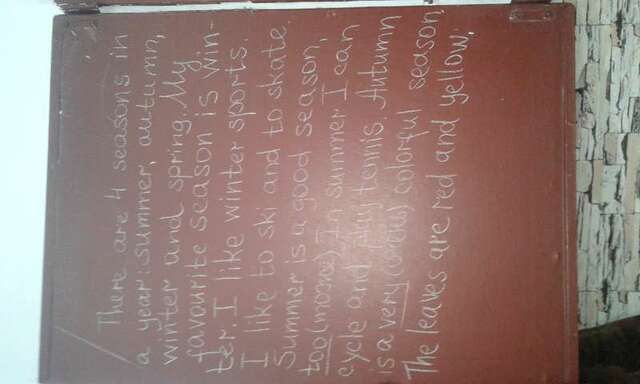 There are 4 seasons in
a year: summer, autumn,
winter and spring. My
favourite season is win-
ter. I like winter sports.
I like to ski and to skate.
Summer is a good season,
too (тоже). In summer I can
cycle and play tennis. Autumn
is a very (очень) colorful season.
The leaves are red and yellow.